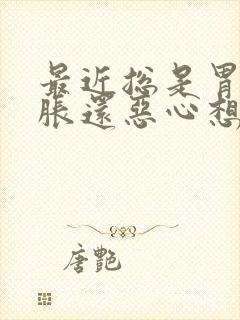 最近总是胃
胀还恶心想
唐艳